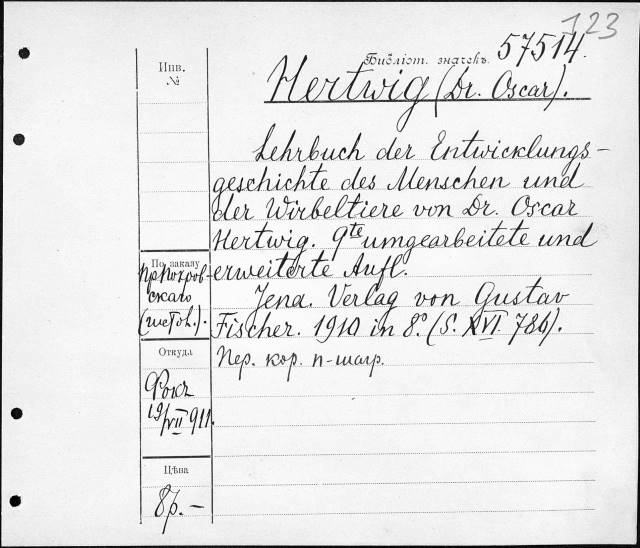 123
Библіот. значекъ. 57514.
Инв.
№
Hertwig (Dr. Oscar).
Lehrbuch der Entwicklungs-
geschichte des Menschen und
der Wirbeltiere von Dr. Oscar
Hertwig. 9te umgearbeitete und
erweiterte Aufl.
Jena. Verlag von Gustav
Fischer. 1910 in 8º. (S. XVI. 786).
Пер. кор. п-шагр.
По заказу
пр. Покров-
скаго
(гистол.).
Откуда
Фокъ
19/VII 911.
Цѣна
8р. –